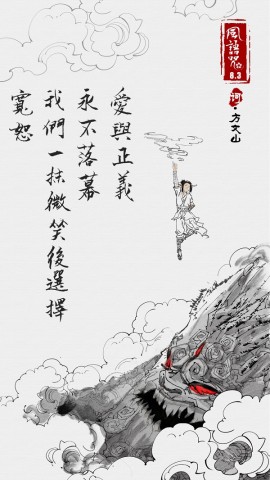 風語咒
8.3
詞
方文山
愛與正義
永不落幕
我們一抹微笑後選擇
寬恕